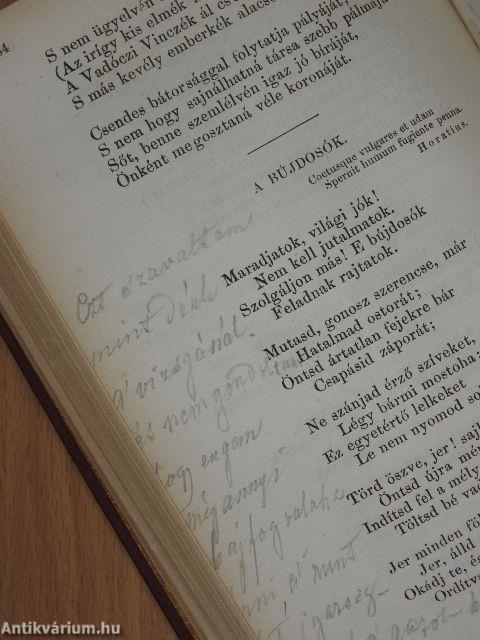 54
S nem ügyelvén
(Az irígy kis elmék
A Vadóczi Vinczék ál
S más kevély emberkék
Csendes bátorsággal folytatja pályáját,
S nem hogy sajnálhatná társa szebb pálmáját
Sőt, benne szemlélvén igaz jó bíráját,
Önként megosztaná véle koronáját.
A BÚJDOSÓK.
Coctusque vulgares et udam
Spernit humum fugiente penna.
Horatius.
Maradjatok, világi jók!
Nem kell jutalmatok.
Szolgáljon más! E bújdosók
Feladnak rajtatok.
Mutasd, gonosz szerencse, már
Hatalmad ostorát;
Öntsd ártatlan fejekre bár
Csapásid záporát;
Ne szánjad érző szíveket,
Légy bármi mostoha;
Ez egyetértő lelkeket
Le nem nyomod
Törd öszve, jer!
Öntsd újra
Indítsd fel a mély
Töltsd bé
Jer minden
Jer, álld
Okádj te,
Ordítv
Ezt szavaltam
mint diák
A vizsgánál.
és nem gondoltam
hogy engem
mégannyi
baj fog valaha
érni a mint
Antikvárium.hu